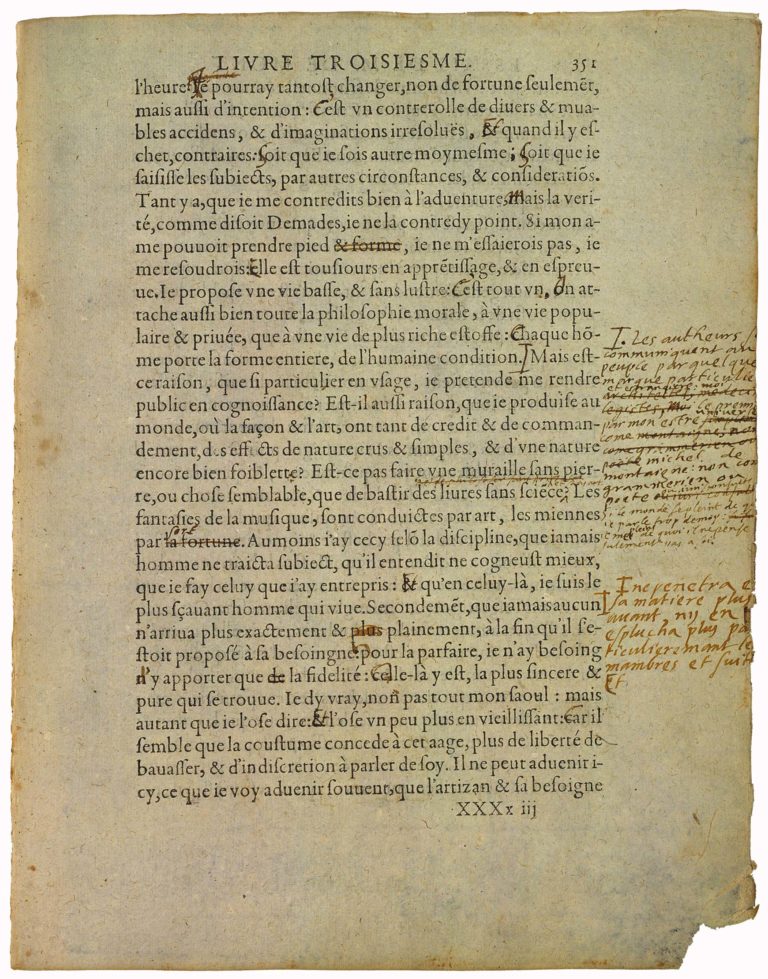 LIVRE TROISIESME. 351
l'heure. Ie pourray tantost changer, non de fortune seulemẽt,
mais aussi d'intention: C'est vn contrerolle de diuers & mua-
bles accidens, & d'imaginations irresoluës, & quand il y es-
chet, contraires: Soit que ie sois autre moymesme; Soit que ie
saisisse les subiects, par autres circonstances, & consideratiõs.
Tant y a, que ie me contredits bien à l'aduenture, Mais la veri-
té, comme disoit Demades, ie ne la contredy point. Si mon a-
me pouuoit prendre pied & forme, ie ne m'essaierois pas, ie
me resoudrois: Elle est tousiours en apprẽtissage, & en espreu-
ue. Ie propose vne vie basse, & sans lustre: C'est tout vn, On at-
tache aussi bien toute la philosophie morale, à vne vie popu-
laire & priuée, que à vne vie de plus riche estoffe: Chaque hõ-
me porte la forme entiere, de l'humaine condition. Mais est-
ce raison, que si particulier en vsage, ie pretende me rendre
public en cognoissance? Est-il aussi raison, que ie produise au
monde, où la façon & l'art, ont tant de credit & de comman-
dement, des effects de nature crus & simples, & d'vne nature
encore bien foiblette? Est-ce pas faire vne muraille sans pier-
re, ou chose semblable, que de bastir des liures sans sciẽce? Les
fantasies de la musique, sont conduictes par art, les miennes
sort
par la fortune. Aumoins i'ay cecy selõ la discipline, que iamais
homme ne traicta subiect, qu'il entendit ne cogneust mieux,
que ie fay celuy que i'ay entrepris: & qu'en celuy-là, ie suis le
plus sçauant homme qui viue. Secondemẽt, que iamais aucun
n'arriua plus exactement & plus plainement, à la fin qu'il s'e-
stoit proposé à sa besoingne: pour la parfaire, ie n'ay besoing
n'y apporter que de la fidelité: Celle-là y est, la plus sincere &
pure qui se trouue. Ie dy vray, non pas tout mon saoul: mais
autant que ie l'ose dire: & l'ose vn peu plus en vieillissant: Car il
semble que la coustume concede à cet aage, plus de liberté de
bauasser, & d'indiscretion à parler de soy. Il ne peut aduenir i-
cy, ce que ie voy aduenir souuent, que l'artizan & sa besoigne
XXXx iij
I. Les autheurs
communiquent au
peuple par quelque
marque particulie
et estrangiere: moi
le premi
par mon estre
come
michel de
montaigne: non com
grammerien ou
poete ou
si le monde se pleint de
ie parle trop de moy:
de quoi il ne pense
sulement pas a soi
I ne penetra e
sa matiere plus
auant ny en
esplucha plus par
ticulieremant les
mambres et suit
Et